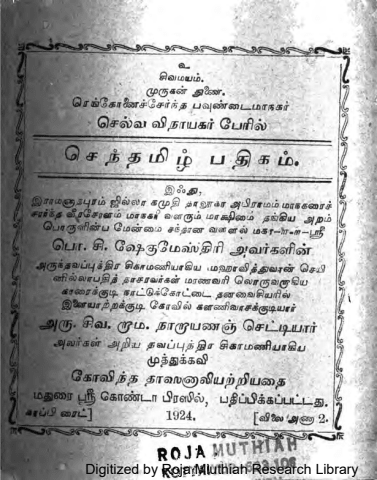 உ
சிவமயம்.
முருகன் துணை.
செங்கோனைச்சேர்ந்த பவுண்டைமாநகர்
செல்வ விநாயகர் பேரில்
செந்தமிழ் பதிகம்.
இஃது,
இராமநாதபுரம் ஜில்லா கமுதி தாலூகா அபிராமம் மாநகரைச்
சார்ந்த வீரசோளம் மாநகர் வளரும் மாக்ஷிமை தங்கிய அறம்
பொருளின்ப மேன்மை சந்தான வள்ளல் மகா-ா-ா-ஸ்ரீ
பொ. சி. ஷேகுமேஸ்திரி அவர்களின்
அருந்தவப்புத்திர சிகாமணியாகிய மஹாவித்துவான் செயி
னில்லாபதித் தாசரவர்கள் மாணவரி லொருவராகிய
காரைக்குடி நாட்டுக்கோட்டை தனவைசியரில்
இளையாற்றக்குடி கோவில் களனிவாசக்குடியார்
அரு. சிவ. மூம. நாராயணஞ் செட்டியார்
அவர்கள் அரிய தவப்புத்திர சிகாமணியாகிய
முத்துக்கவி
கோவிந்த தாஸனாலியற்றியதை
மதுரை ஸ்ரீ கொண்டா பிரஸில், பதிப்பிக்கப்பட்டது.
காப்பி ரைட்] 1924. [விலை அணா 2.
ROJA MUTHIAH
Digitized by Roja Muthiah Research Library